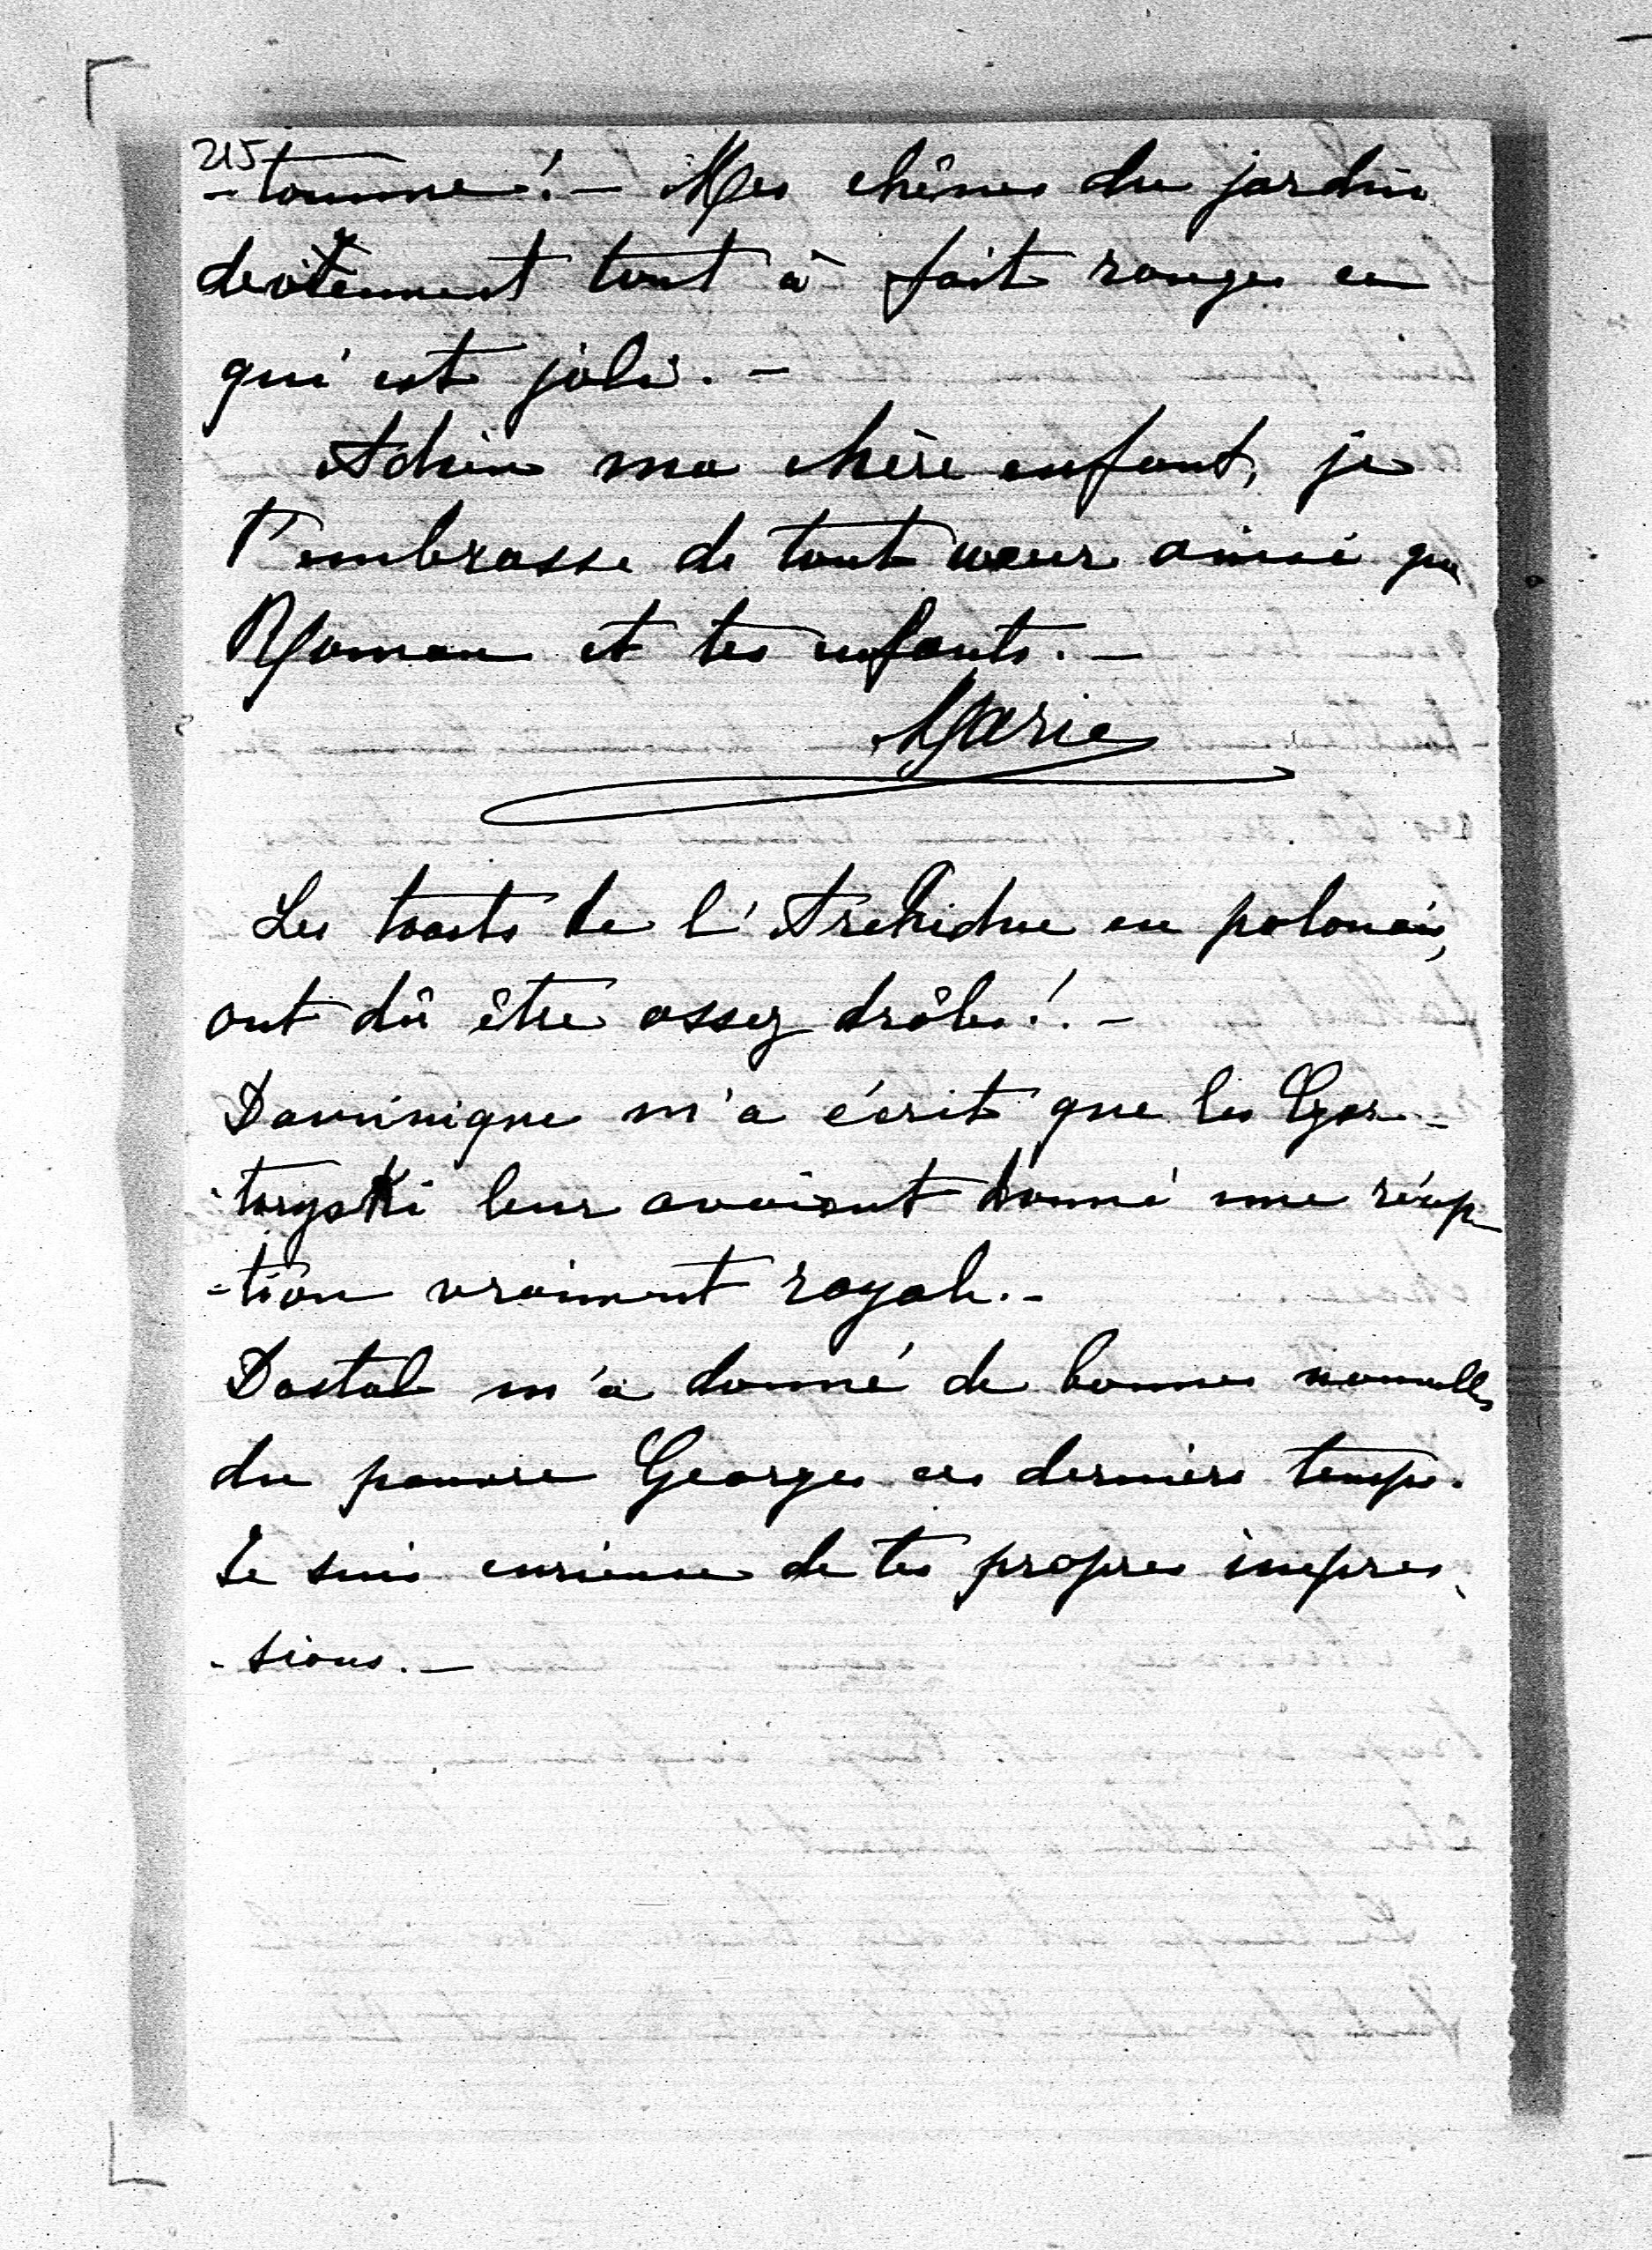 215
-tomne!- Mes chênes du jardin
deviennent tout à fait rouges ce
qui est joli. -
Adieu ma chère enfant, je
t'embrasse de tout coeur ainsi que
Roman et tes enfants. -
Marie
Les toasts de l'Archiduc en polonais,
ont dû être assez drôles! -
Dominique m'a écrit que les Czar-
-toryski leur avaient donné une récep
-tion vraiment royale. -
Dostal m'a donné de bonnes nouvelles
du pauvre Georges ces derniers temps.
Je suis curieuse de tes propres impres-
-sions. -